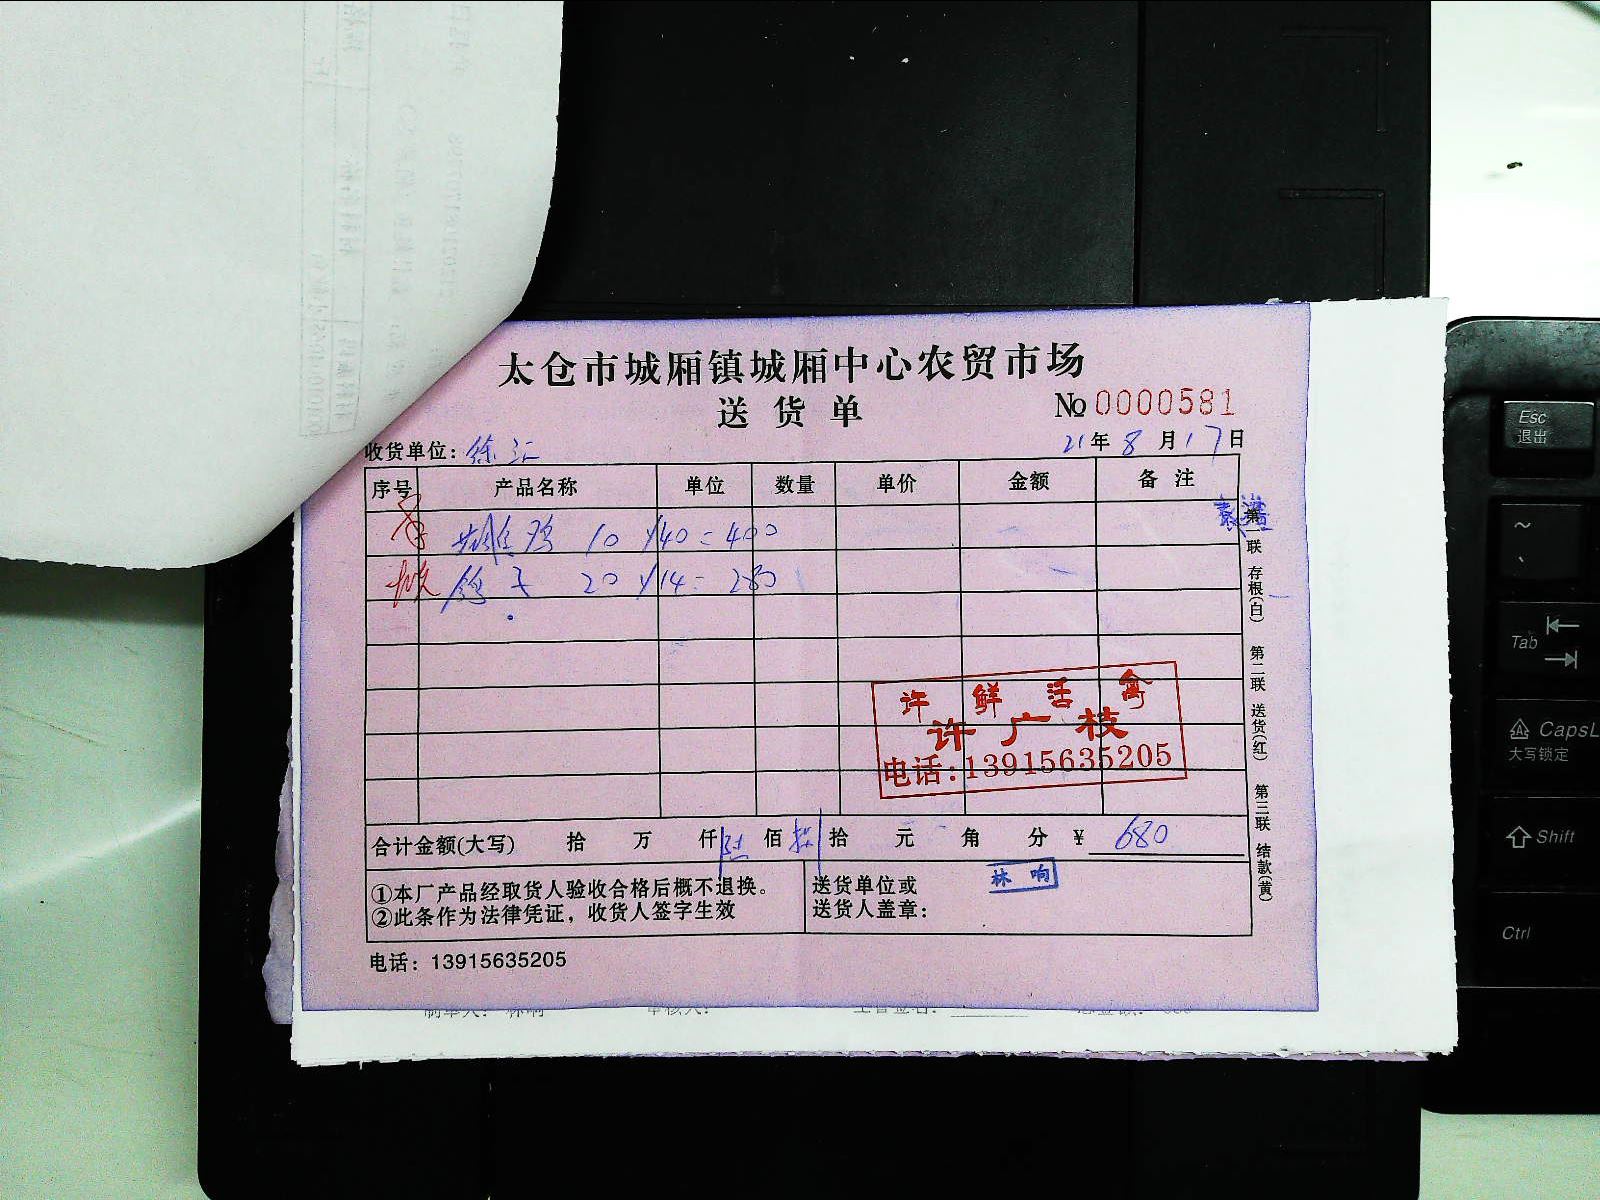 太仓市城厢镇城厢中心农贸市场
送货单
№ 0000581
收货单位：徐汇
21年8月17日
序号 产品名称 单位 数量 单价 金额 备注
10 × 40 = 400
鸽子 20 × 14 = 280
第一联 存根(白) 第二联 送货(红) 第三联 结款(黄)
许 鲜 活 禽
许广枝
电话:13915635205
合计金额(大写) 拾 万 仟陆佰捌拾 元 角 分 ¥ 680
①本厂产品经取货人验收合格后概不退换。
②此条作为法律凭证，收货人签字生效
送货单位或
送货人盖章：
林响
电话：13915635205
Esc
退出
~
Tab
CapsL
大写锁定
Shift
Ctrl